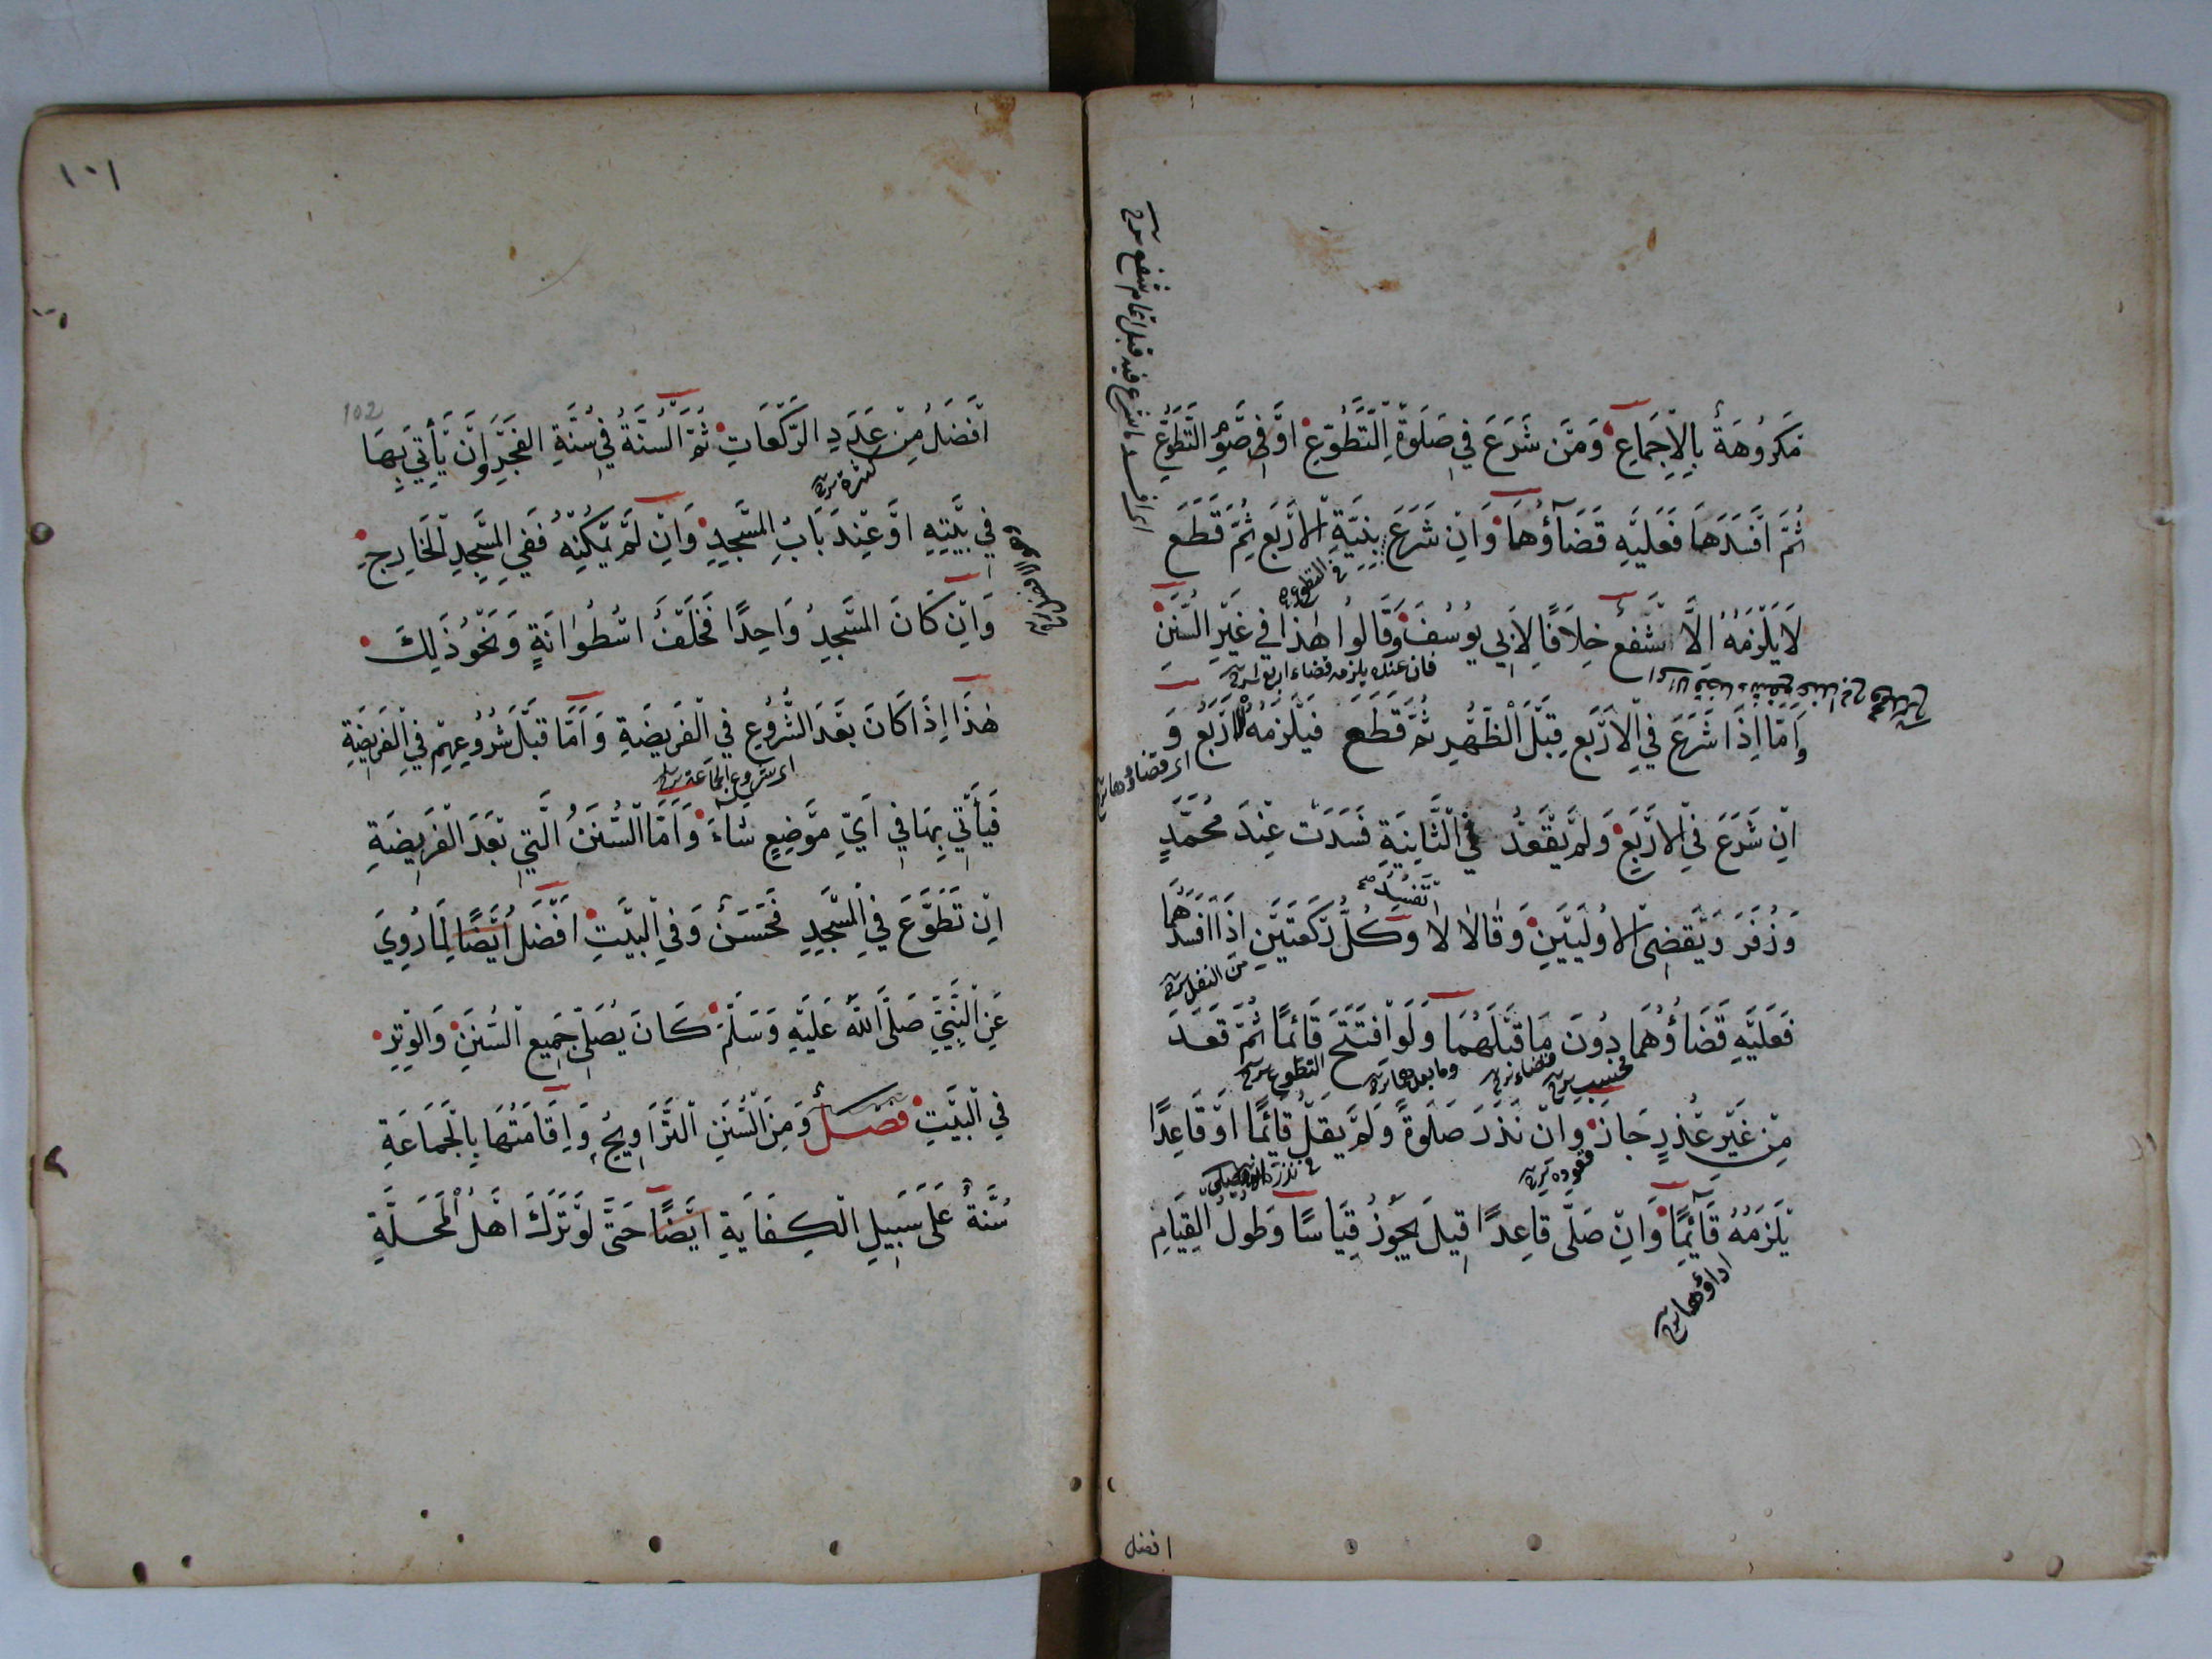 مَكْرُوهَةٌ بِالْاِجْمَاعِ وَمَنْ شَرَعَ فِي صَلَوةِ التَّطَوُّعِ اَوْ فِي صَوْمِ التَّطَوُّعِ
ثُمَّ اَفْسَدَهَا فَعَلَيْهِ قَضَآؤُهَا وَاِنْ شَرَعَ بِنِيَّةِ الْاَرْبَعِ ثُمَّ قَطَعَ
فى التطوع
لَا يَلْزَمُهُ اِلَّا شَفْعٌ خِلَافًا لِاَبِي يُوسُفَ وَقَالُوا هٰذَا فِي غَيْرِ السُّنَنِ
فان عنده يلزمه قضاء اربع شرح
وَاَمَّا اِذَا شَرَعَ فِي الْاَرْبَعِ قَبْلَ الظُّهْرِ ثُمَّ قَطَعَ فَيَلْزَمُهُ الْاَرْبَعُ وَ
اى قضاؤها شرح
اِنْ شَرَعَ فِي الْاَرْبَعِ وَلَمْ يَقْعُدْ فِي الثَّانِيَةِ فَسَدَتْ عِنْدَ مُحَمَّدٍ
وَزُفَرَ وَيَقْضِى الْاُولَيَيْنِ وَقَالَا لَا وَكُلُّ رَكْعَتَيْنِ اِذَا اَفْسَدَهُمَا
من النفل شرح
فَعَلَيْهِ قَضَاؤُهُمَا دُونَ مَا قَبْلَهُمَا وَلَوْ افْتَتَحَ قَائِمًا ثُمَّ قَعَدَ
فحسب شرح قضاء شرح وما بعدهما شرح التطوع شرح
مِنْ غَيْرِ عُذْرٍ جَازَ وَاِنْ نَذَرَ صَلَوةً وَلَمْ يَقُلْ قَائِمًا اَوْ قَاعِدًا
فقعوده شرح فى نذره
يَلْزَمُهُ قَآئِمًا وَاِنْ صَلَّى قَاعِدًا قِيلَ يَجُوزُ قِيَاسًا وَطُولُ الْقِيَامِ
اداؤها شرح
اى افسد ما شرع فيه قبل اتمام شفع شرح
افضل
١٠١
102
اَفْضَلُ مِنْ عَدَدِ الرَّكْعَاتِ ثُمَّ السُّنَّةُ فِي سُنَّةِ الْفَجْرِ وَاِنْ يَأْتِيَ بِهَا
كثرة شرح
فِي بَيْتِهِ اَوْ عِنْدَ بَابِ الْمَسْجِدِ وَاِنْ لَمْ يُمْكِنْهُ فَفِي الْمَسْجِدِ الْخَارِجِ
وَاِنْ كَانَ الْمَسْجِدُ وَاحِدًا فَخَلْفَ اُسْطُوَانَةٍ وَنَحْوُ ذَلِكَ
هٰذَا اِذَا كَانَ بَعْدَ الشُّرُوعِ فِي الْفَرِيضَةِ وَاَمَّا قَبْلَ شُرُوعِهِمْ فِي الْفَرِيضَةِ
اى شروع الجماعة شرح
فَيَأْتِي بِهَا فِي اَيِّ مَوْضِعٍ شَاءَ وَاَمَّا السُّنَنُ الَّتِي بَعْدَ الْفَرِيضَةِ
اِنْ تَطَوَّعَ فِي الْمَسْجِدِ فَحَسَنٌ وَفِي الْبَيْتِ اَفْضَلُ اَيْضًا لِمَا رُوِيَ
عَنِ النَّبِيِّ صَلَّى اللّٰهُ عَلَيْهِ وَسَلَّمَ كَانَ يُصَلِّى جَمِيعَ السُّنَنِ وَالْوِتْرِ
فِي الْبَيْتِ فَصْلٌ وَمِنَ السُّنَنِ التَّرَاوِيحُ وَاِقَامَتُهَا بِالْجَمَاعَةِ
سُنَّةٌ عَلَى سَبِيلِ الْكِفَايَةِ اَيْضًا حَتَّى لَوْ تَرَكَ اَهْلُ الْمَحَلَّةِ